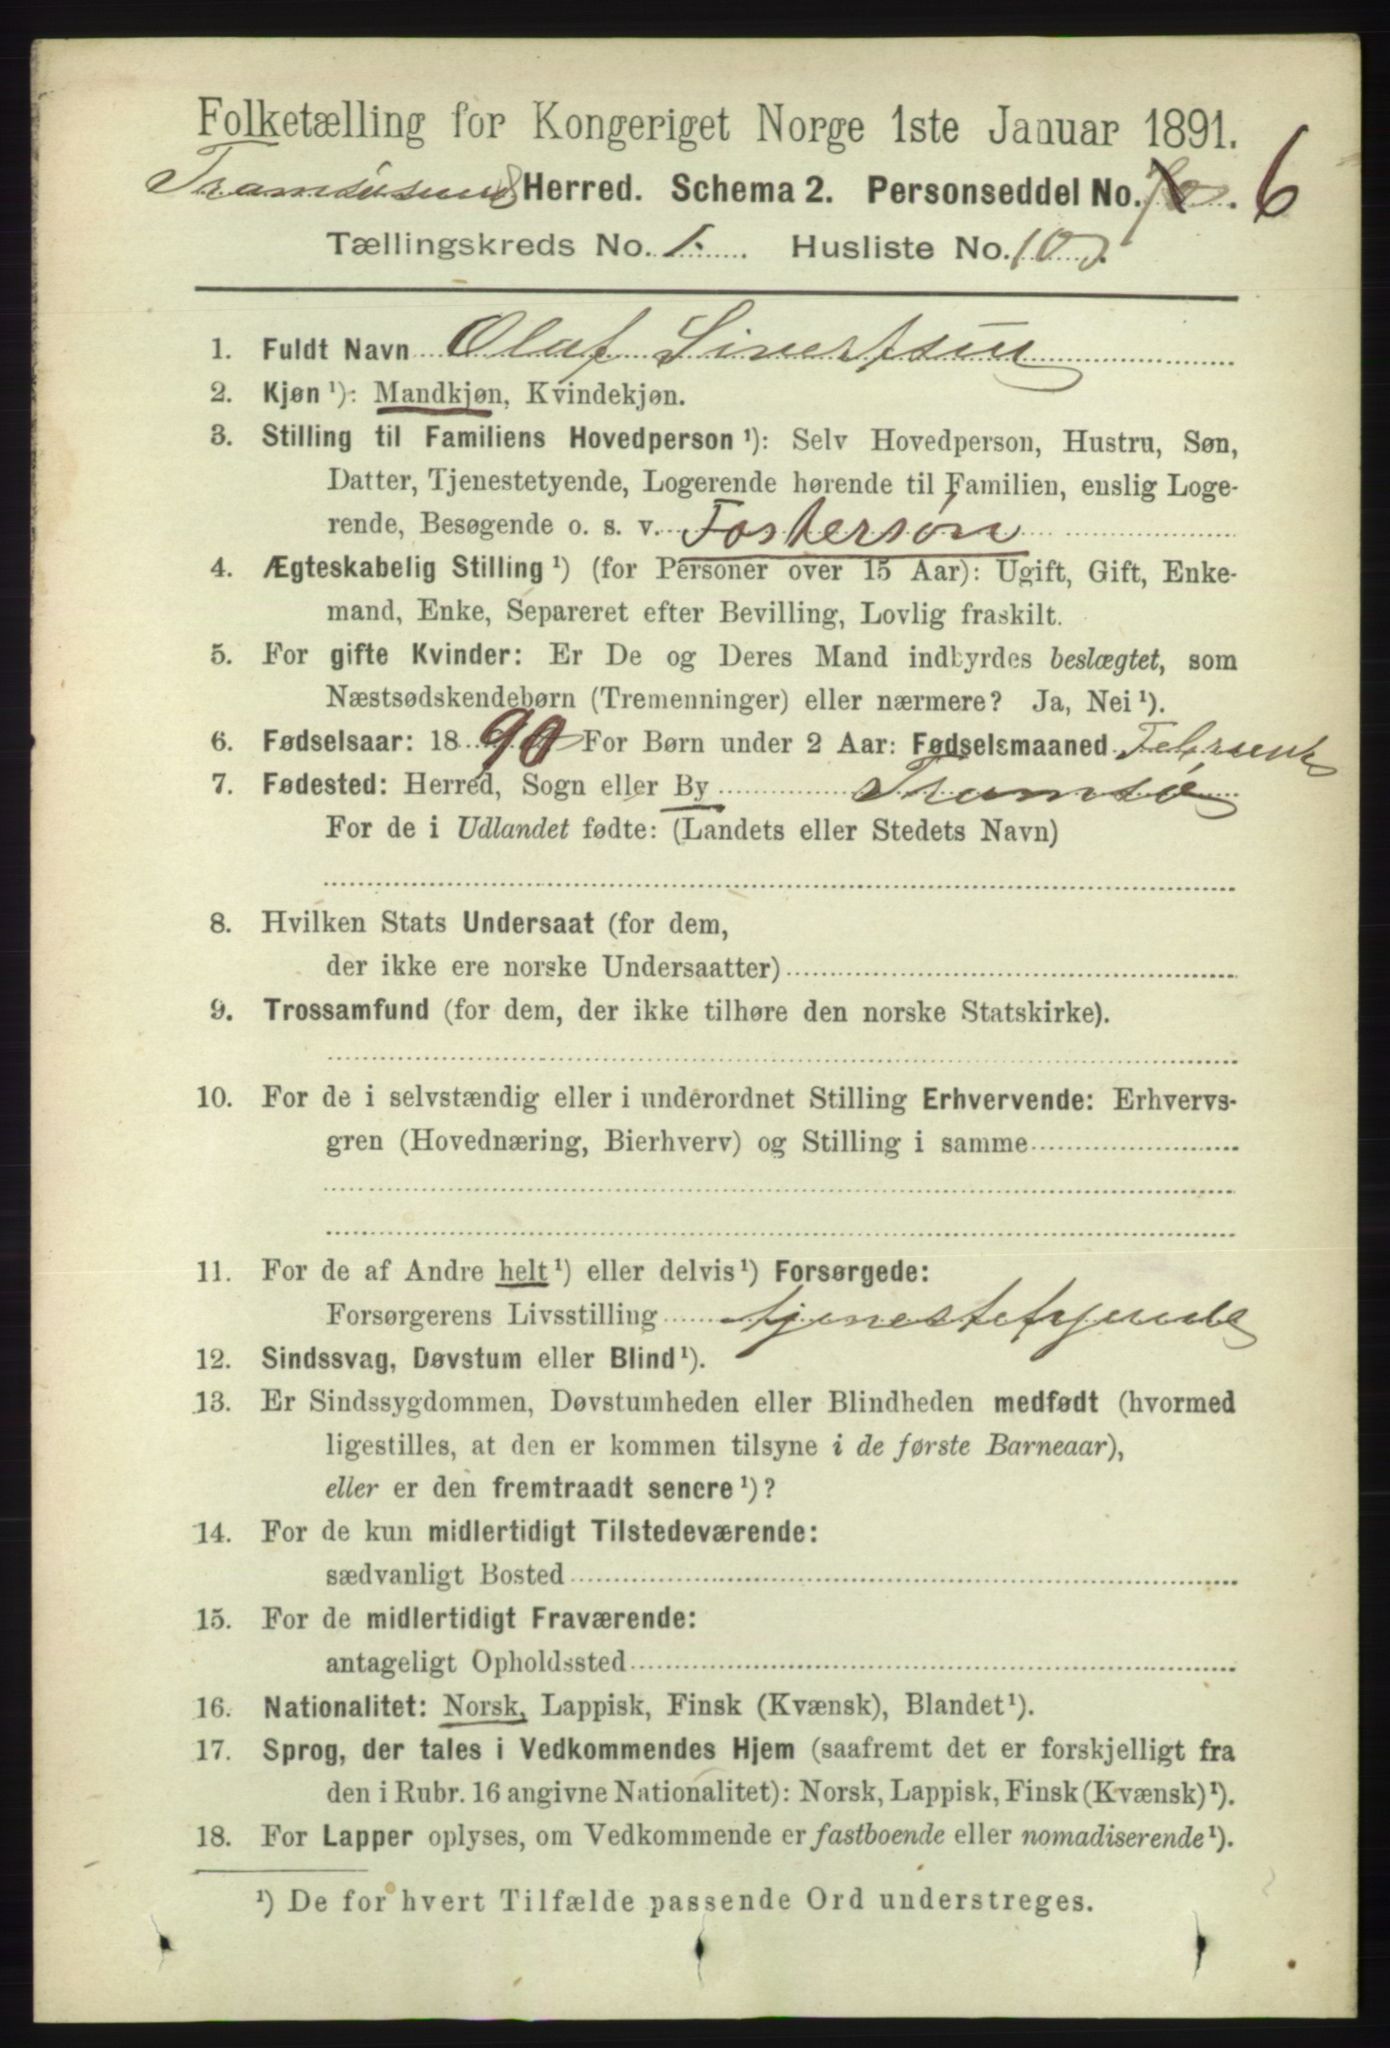 Folketælling for Kongeriget Norge 1ste Januar 1891.
Tromsøsund Herred. Schema 2. Personseddel No. 6
Tællingskreds No. 1. Husliste No. 10
1. Fuldt Navn Olaf Sivertsen
2. Kjøn ¹): Mandkjøn, Kvindekjøn.
3. Stilling til Familiens Hovedperson ¹): Selv Hovedperson, Hustru, Søn,
Datter, Tjenestetyende, Logerende hørende til Familien, enslig Loge-
rende, Besøgende o. s. v. Fostersøn
4. Ægteskabelig Stilling ¹) (for Personer over 15 Aar): Ugift, Gift, Enke-
mand, Enke, Separeret efter Bevilling, Lovlig fraskilt.
5. For gifte Kvinder: Er De og Deres Mand indbyrdes beslægtet, som
Næstsødskendebørn (Tremenninger) eller nærmere? Ja, Nei ¹).
6. Fødselsaar: 18 90 For Børn under 2 Aar: Fødselsmaaned Februar
7. Fødested: Herred, Sogn eller By Tromsø
For de i Udlandet fødte: (Landets eller Stedets Navn)
8. Hvilken Stats Undersaat (for dem,
der ikke ere norske Undersaatter)
9. Trossamfund (for dem, der ikke tilhøre den norske Statskirke).
10. For de i selvstændig eller i underordnet Stilling Erhvervende: Erhvervs-
gren (Hovednæring, Bierhverv) og Stilling i samme
11. For de af Andre helt ¹) eller delvis ¹) Forsørgede:
Forsørgerens Livsstilling tjenestetyende
12. Sindssvag, Døvstum eller Blind ¹).
13. Er Sindssygdommen, Døvstumheden eller Blindheden medfødt (hvormed
ligestilles, at den er kommen tilsyne i de første Barneaar),
eller er den fremtraadt senere ¹)?
14. For de kun midlertidigt Tilstedeværende:
sædvanligt Bosted
15. For de midlertidigt Fraværende:
antageligt Opholdssted
16. Nationalitet: Norsk, Lappisk, Finsk (Kvænsk), Blandet ¹).
17. Sprog, der tales i Vedkommendes Hjem (saafremt det er forskjelligt fra
den i Rubr. 16 angivne Nationalitet): Norsk, Lappisk, Finsk (Kvænsk) ¹).
18. For Lapper oplyses, om Vedkommende er fastboende eller nomadiserende ¹).
¹) De for hvert Tilfælde passende Ord understreges.